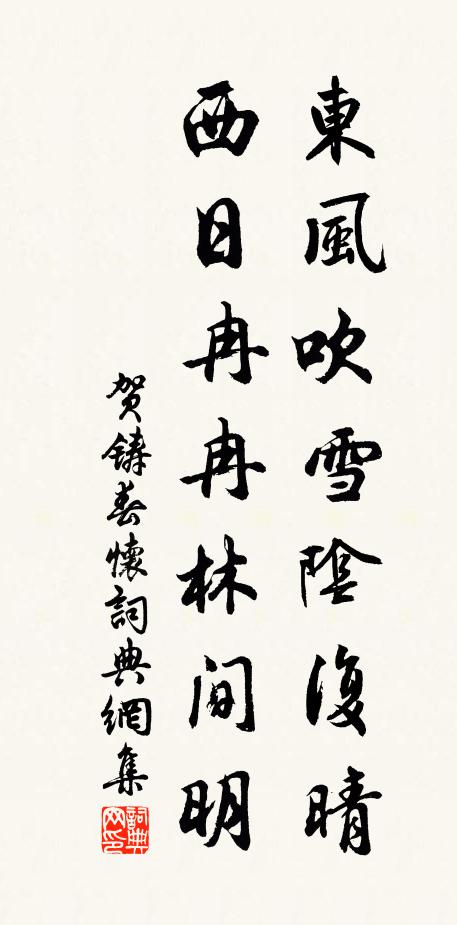 東風吹雪陰復晴
西日冉冉林間明
賀鑄春懷詞典網集
詞典网印